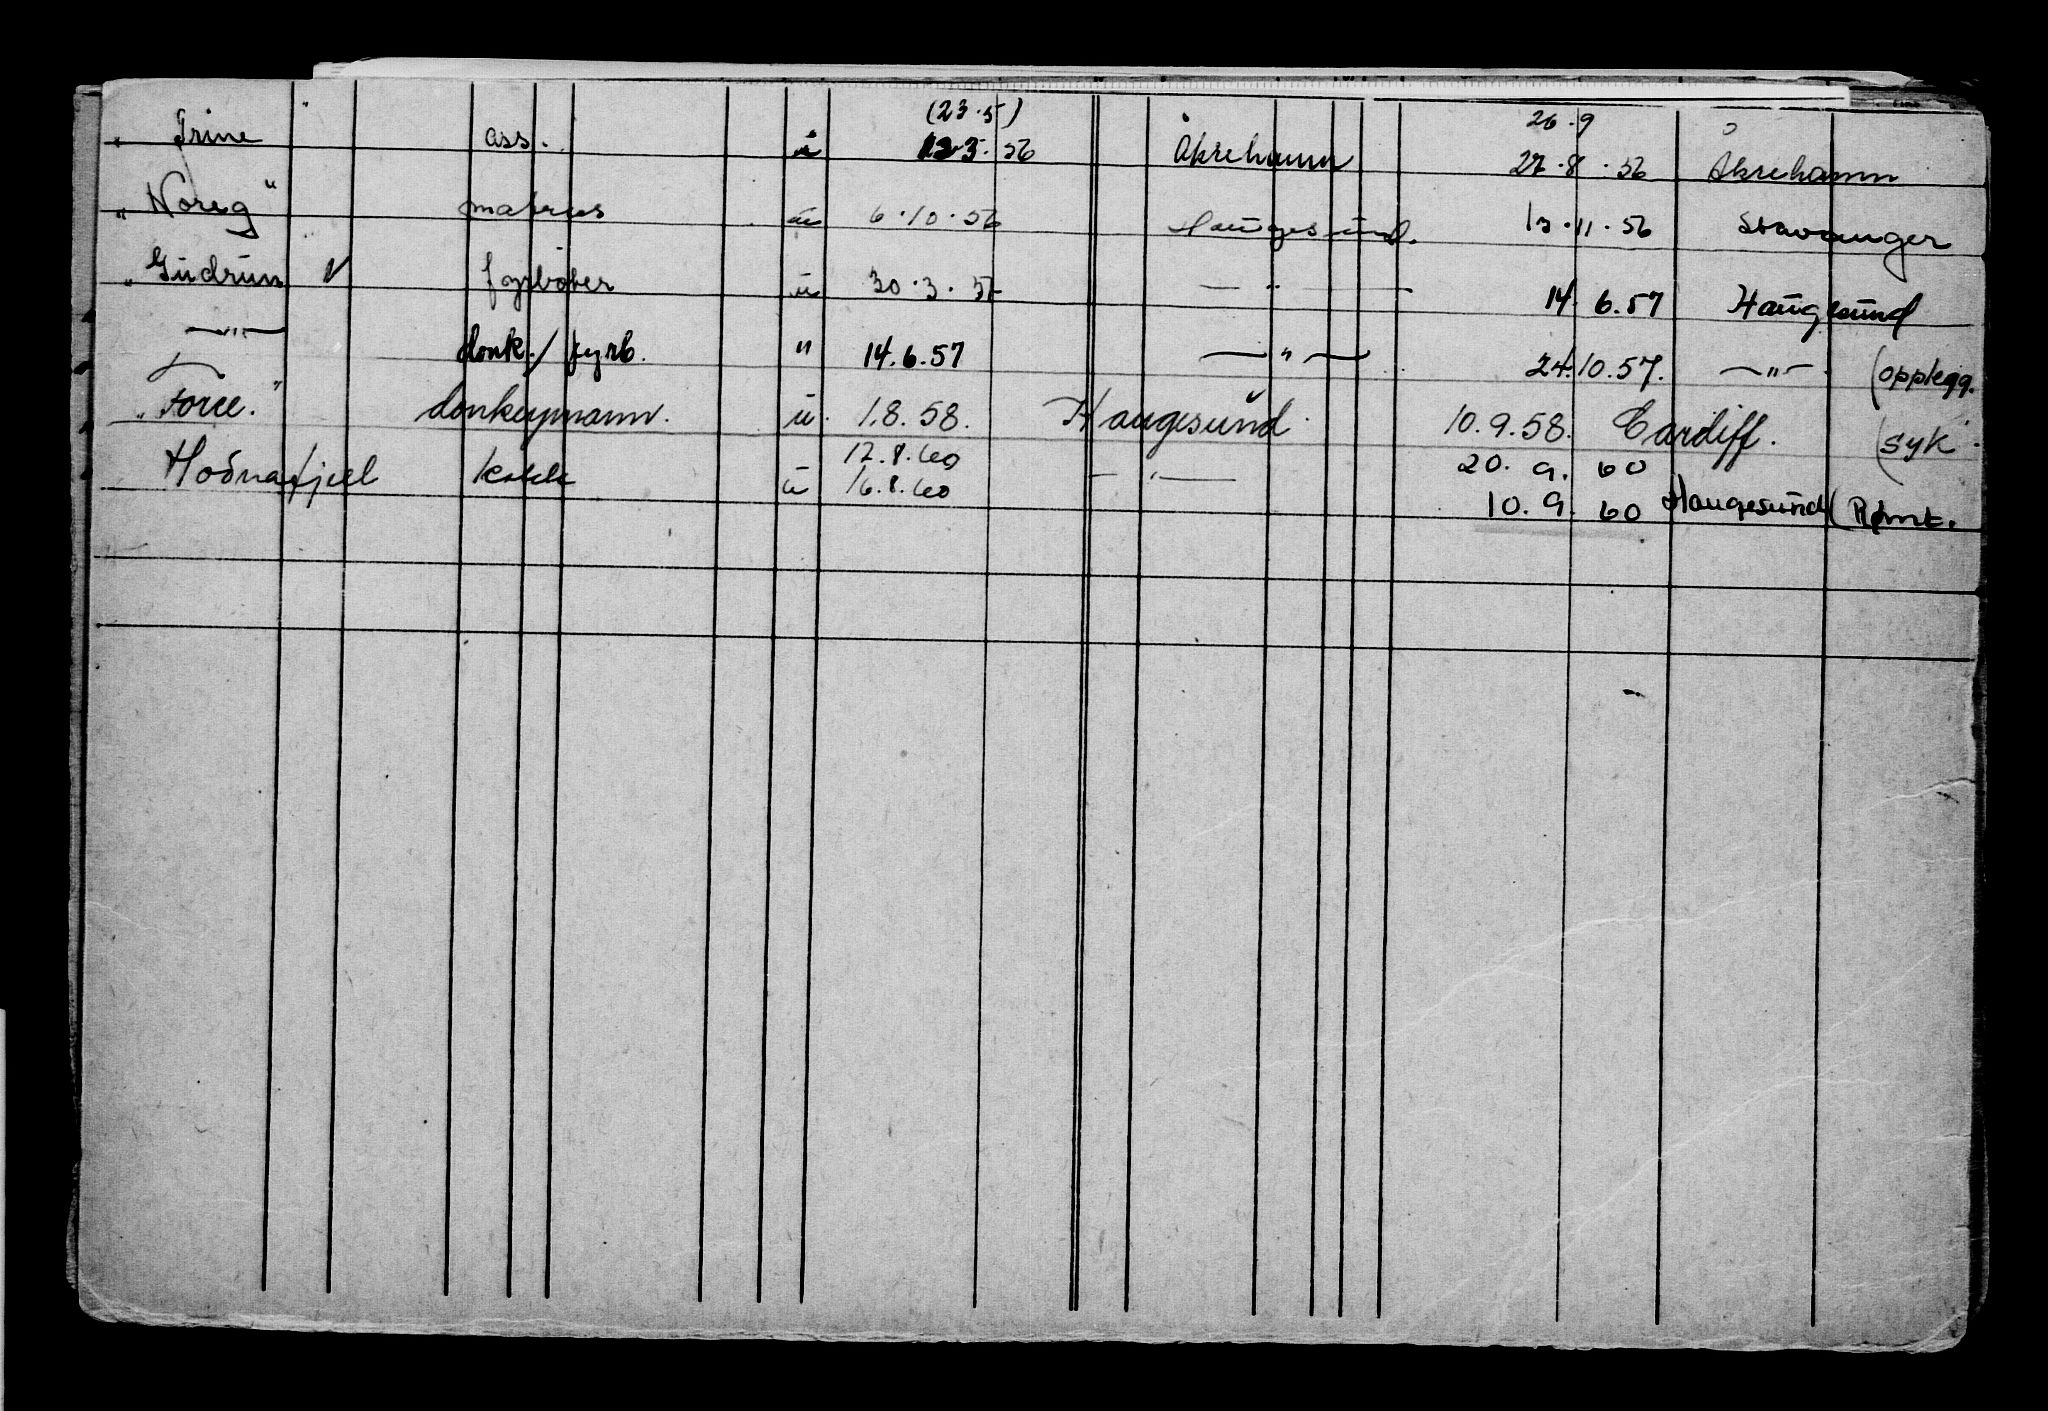 (23.5) 26.9
" Trine ass. u 12.3.56 Åkrehamn 27.8.56 Åkrehamn
" Noreg" matros u 6.10.56 Haugesund. 13.11.56 Stavanger
" Gudrun V fyrbøter u 30.3.57 — " — 14.6.57 Haugesund
— " — donk./fyrb. " 14.6.57 — " — 24.10.57. — " — (opplegg.
"Force." donkeymann. u. 1.8.58. Haugesund. 10.9.58. Cardiff. (syk.
12.8.60 20.9.60
Hodnafjell kokk u 16.8.60 — " — 10.9.60 Haugesund (Rømt.